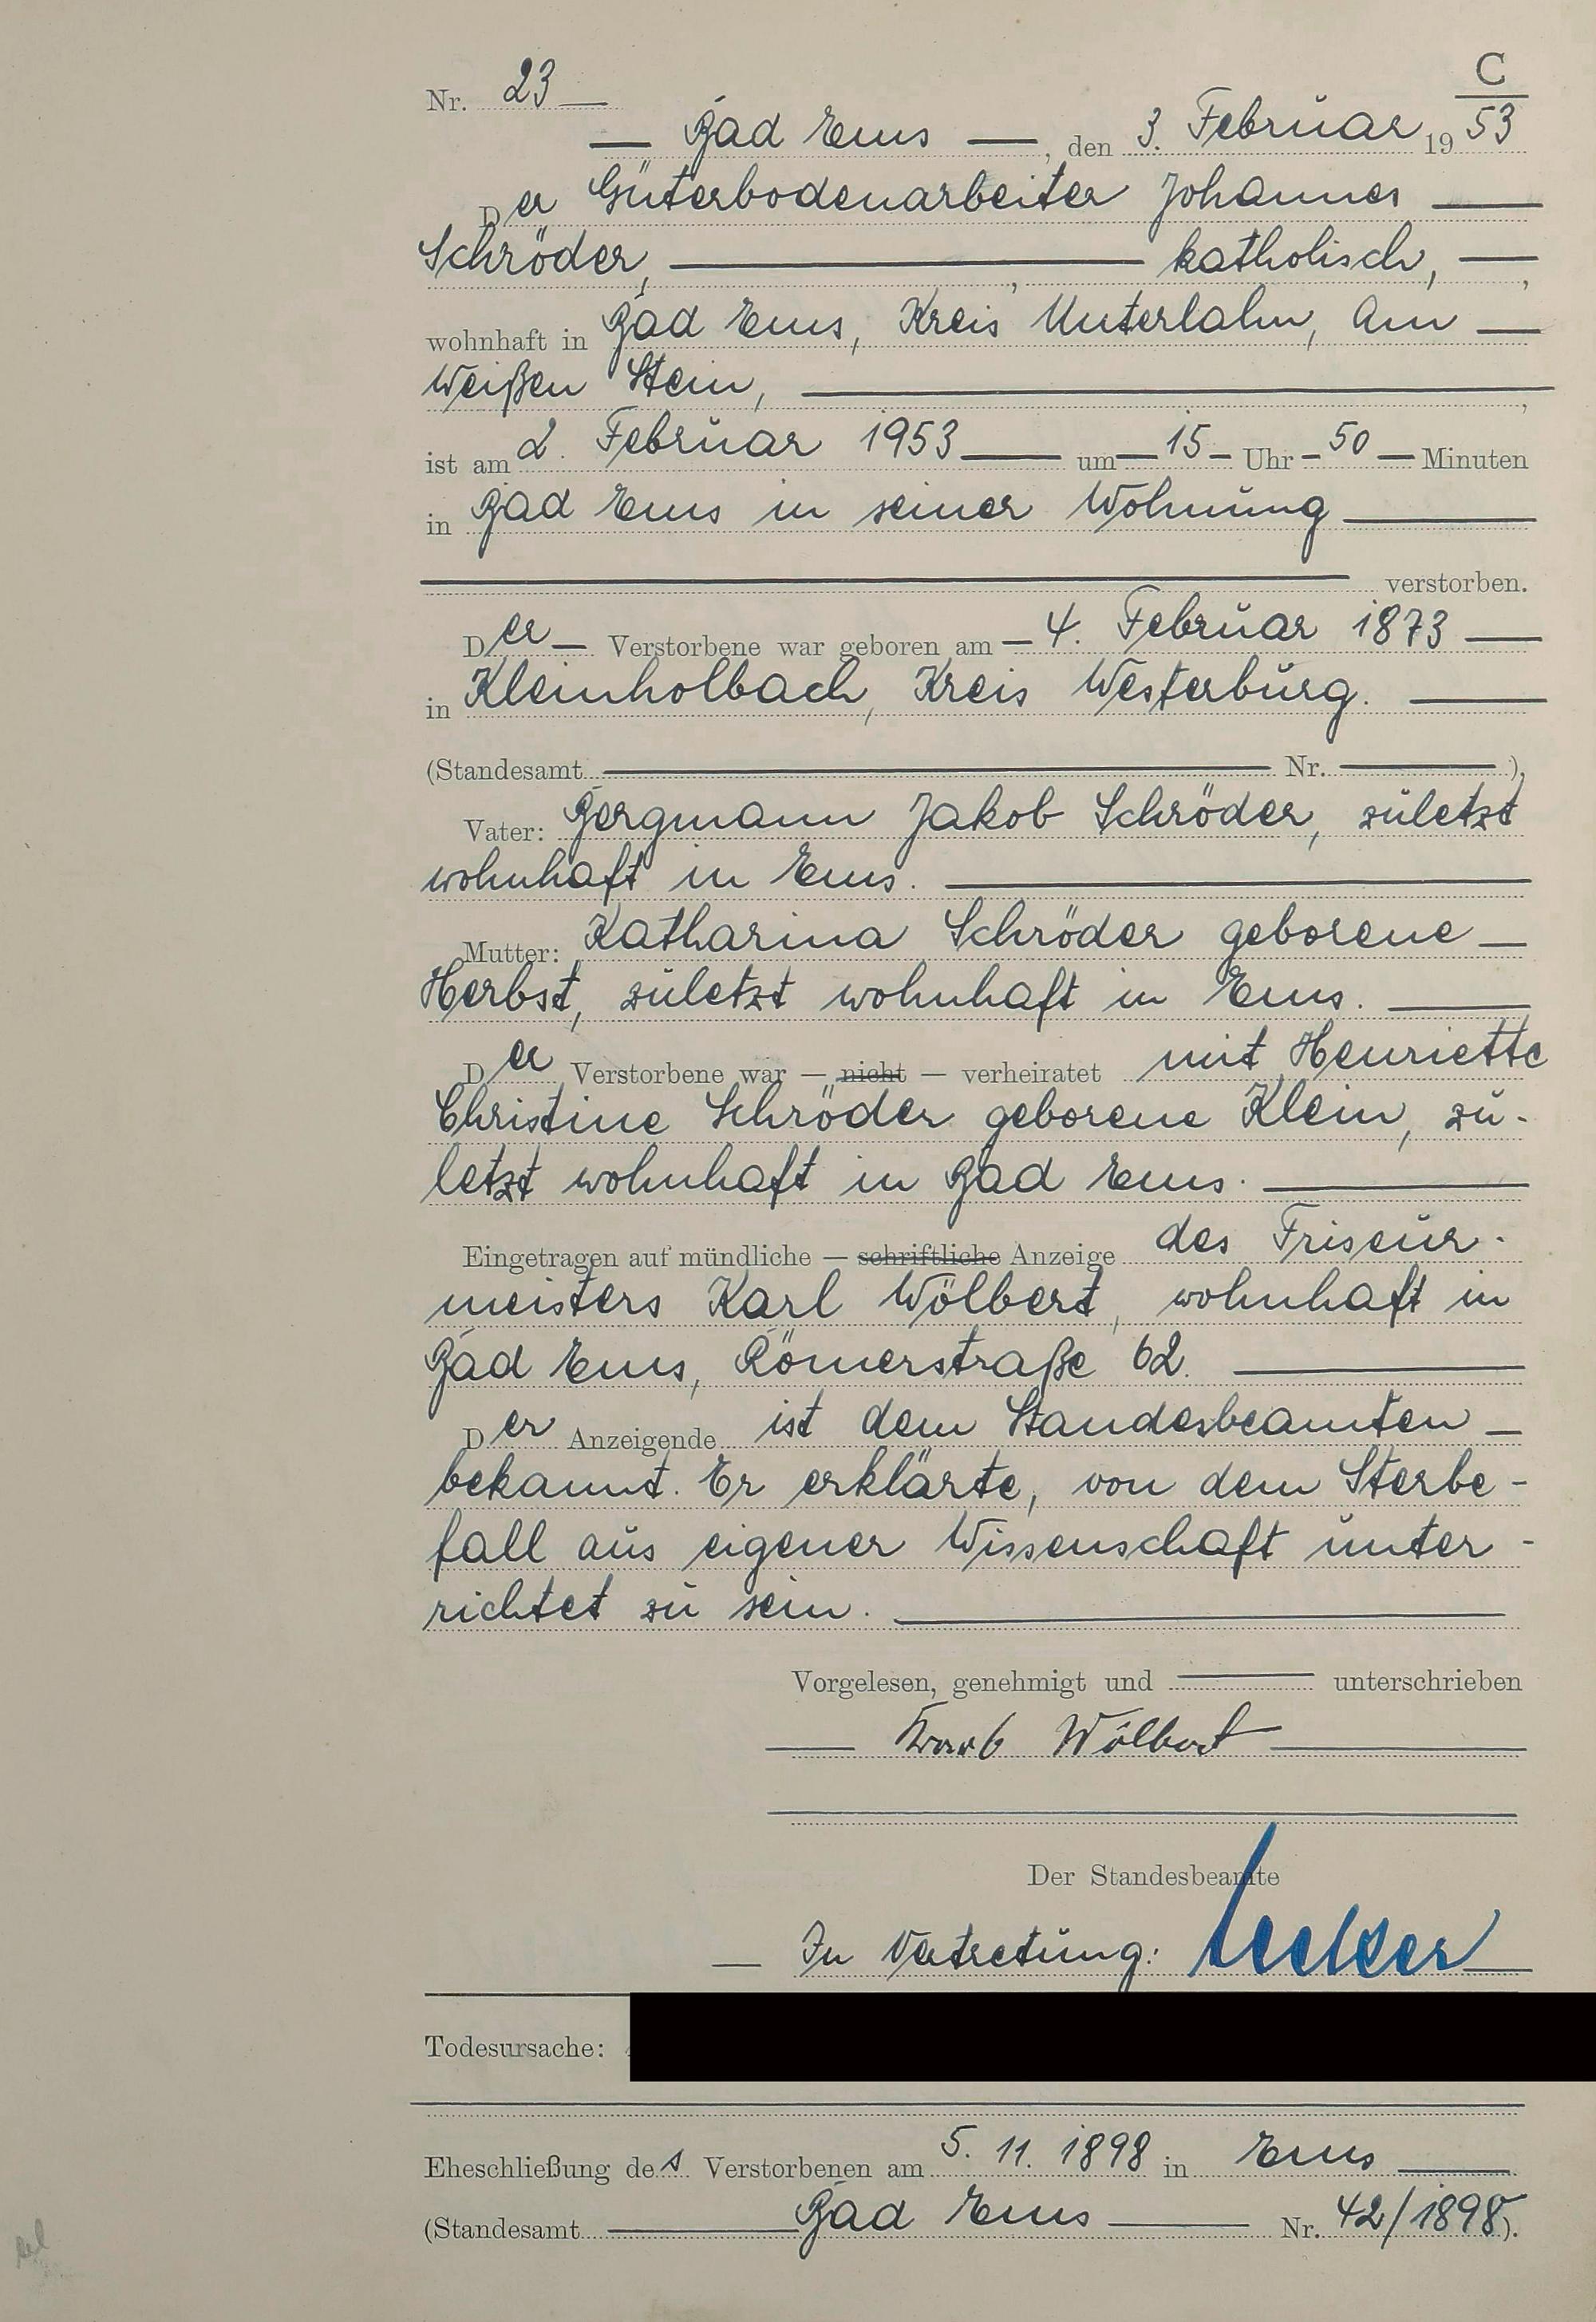 C
Nr. 23
Bad Ems, den 3. Februar 1953
Der Güterbodenarbeiter Johannes
Schröder, katholisch,
wohnhaft in Bad Ems, Kreis Unterlahn, Am
Weißen Stein,
ist am 2. Februar 1953 um 15 Uhr 50 Minuten
in Bad Ems in seiner Wohnung
verstorben.
Der Verstorbene war geboren am 4. Februar 1873
in Kleinholbach, Kreis Westerburg.
(Standesamt Nr. ),
Vater: Bergmann Jakob Schröder, zuletzt
wohnhaft in Ems.
Mutter: Katharina Schröder geborene
Herbst, zuletzt wohnhaft in Ems.
Der Verstorbene war — nicht — verheiratet mit Henriette
Christine Schröder geborene Klein, zu-
letzt wohnhaft in Bad Ems.
Eingetragen auf mündliche — schriftliche Anzeige des Friseur-
meisters Karl Wölbert, wohnhaft in
Bad Ems, Römerstraße 62.
Der Anzeigende ist dem Standesbeamten
bekannt. Er erklärte, von dem Sterbe-
fall aus eigener Wissenschaft unter-
richtet zu sein.
Vorgelesen, genehmigt und unterschrieben
Wölbert
Der Standesbeamte
In Vertretung:
Todesursache:
Eheschließung des Verstorbenen am 5. 11. 1898 in Ems
(Standesamt Bad Ems Nr. 42/1898).